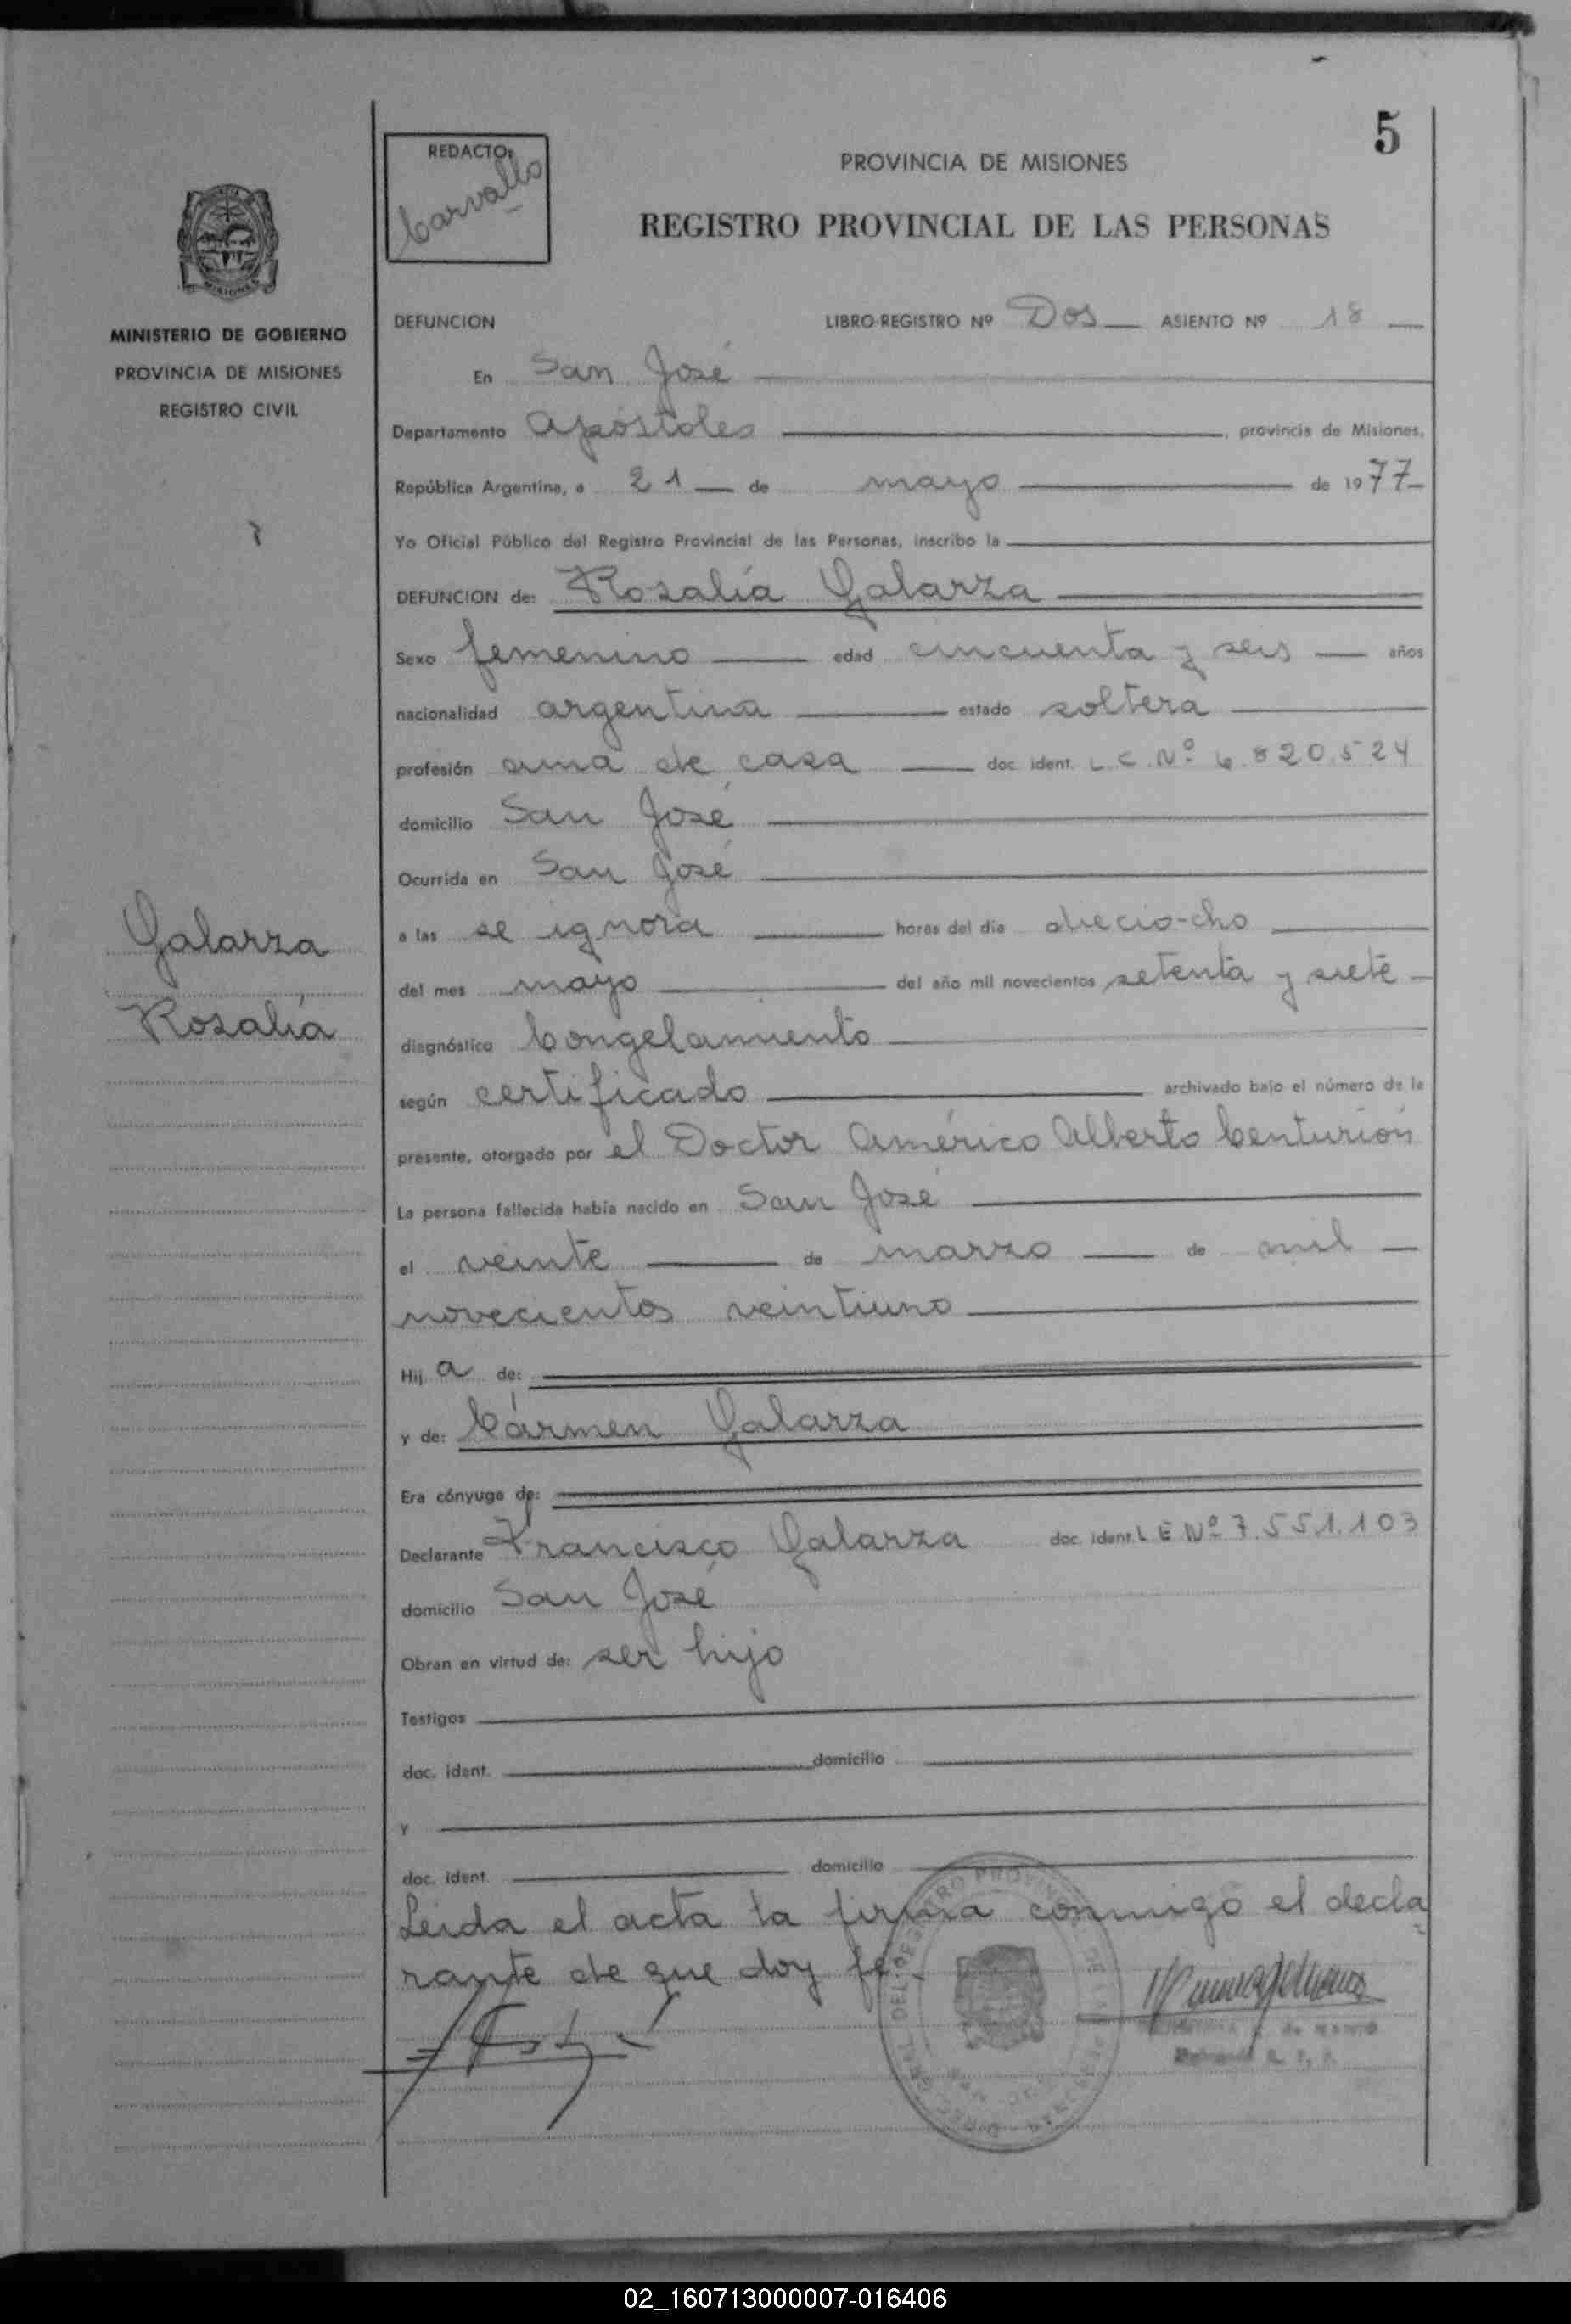 5
REDACTO:
Carvallo
PROVINCIA DE MISIONES
REGISTRO PROVINCIAL DE LAS PERSONAS
MINISTERIO DE GOBIERNO
PROVINCIA DE MISIONES
REGISTRO CIVIL
DEFUNCION LIBRO-REGISTRO Nº Dos ASIENTO Nº 18
En San José
Departamento Apóstoles, provincia de Misiones,
República Argentina, a 21 de mayo de 1977
Yo Oficial Público del Registro Provincial de las Personas, inscribo la
DEFUNCION de: Rosalía Galarza
Sexo femenino edad cincuenta y seis años
nacionalidad argentina estado soltera
profesión ama de casa doc. ident. L.C. Nº 6.820.524
domicilio San José
Ocurrida en San José
a las se ignora horas del día diecio-cho
del mes mayo del año mil novecientos setenta y siete
diagnóstico Congelamiento
según certificado archivado bajo el número de la
presente, otorgado por el Doctor Américo Alberto Centurión
La persona fallecida había nacido en San José
el veinte de marzo de mil
novecientos veintiuno
Hija de:
y de: Cármen Galarza
Era cónyuge de:
Declarante Francisco Galarza doc. ident. L E Nº 7.551.103
domicilio San José
Obran en virtud de: ser hijo
Testigos
doc. ident. domicilio
Y
doc. ident. domicilio
Leida el acta la firma conmigo el decla
rante de que doy fe.
Galarza
Rosalía
02_160713000007-016406